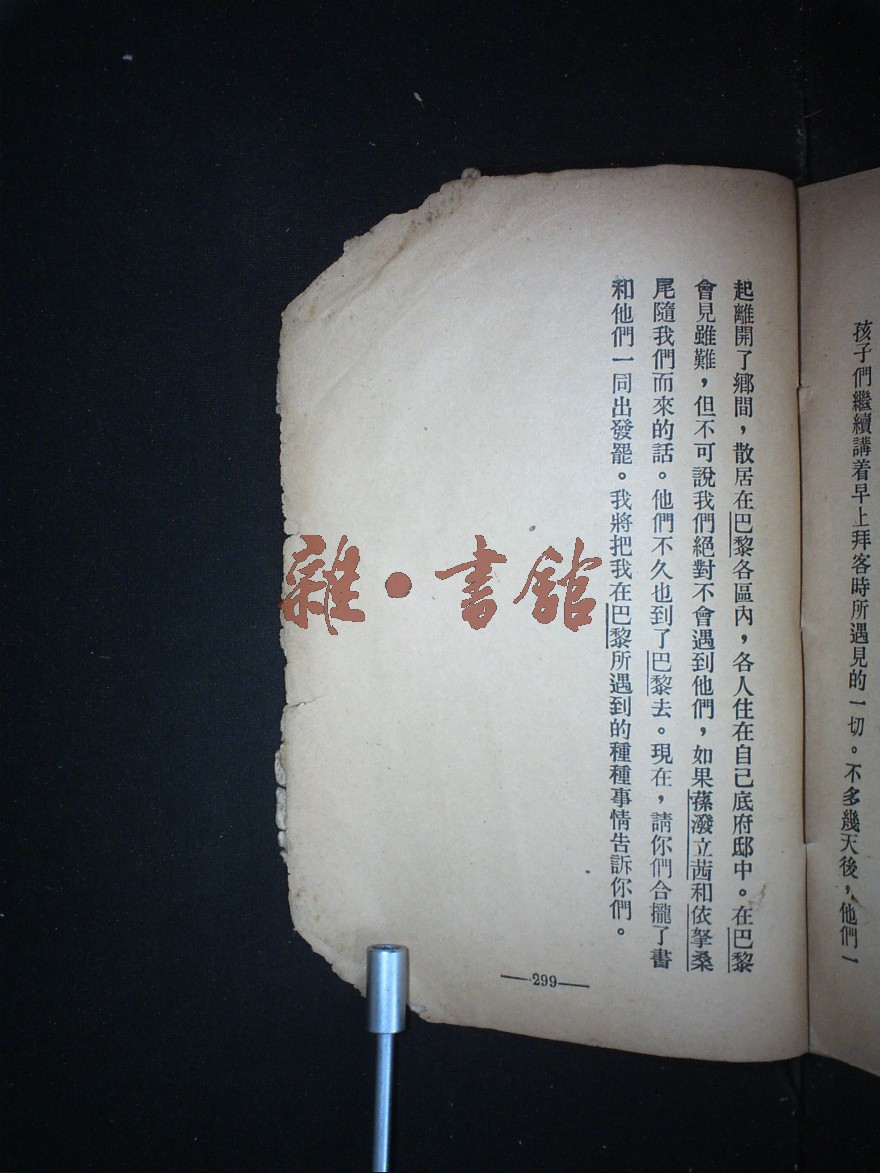 孩子們繼續講着早上拜客時所遇見的一切。不多幾天後，他們一
起離開了鄉間，散居在巴黎各區內，各人住在自己底府邸中。在巴黎
會見雖難，但不可說我們絕對不會遇到他們，如果蓀潑立茜和依拏桑
尾隨我們而來的話。他們不久也到了巴黎去。現在，請你們合攏了書
和他們一同出發罷。我將把我在巴黎所遇到的種種事情告訴你們。
—299—
雜·書館